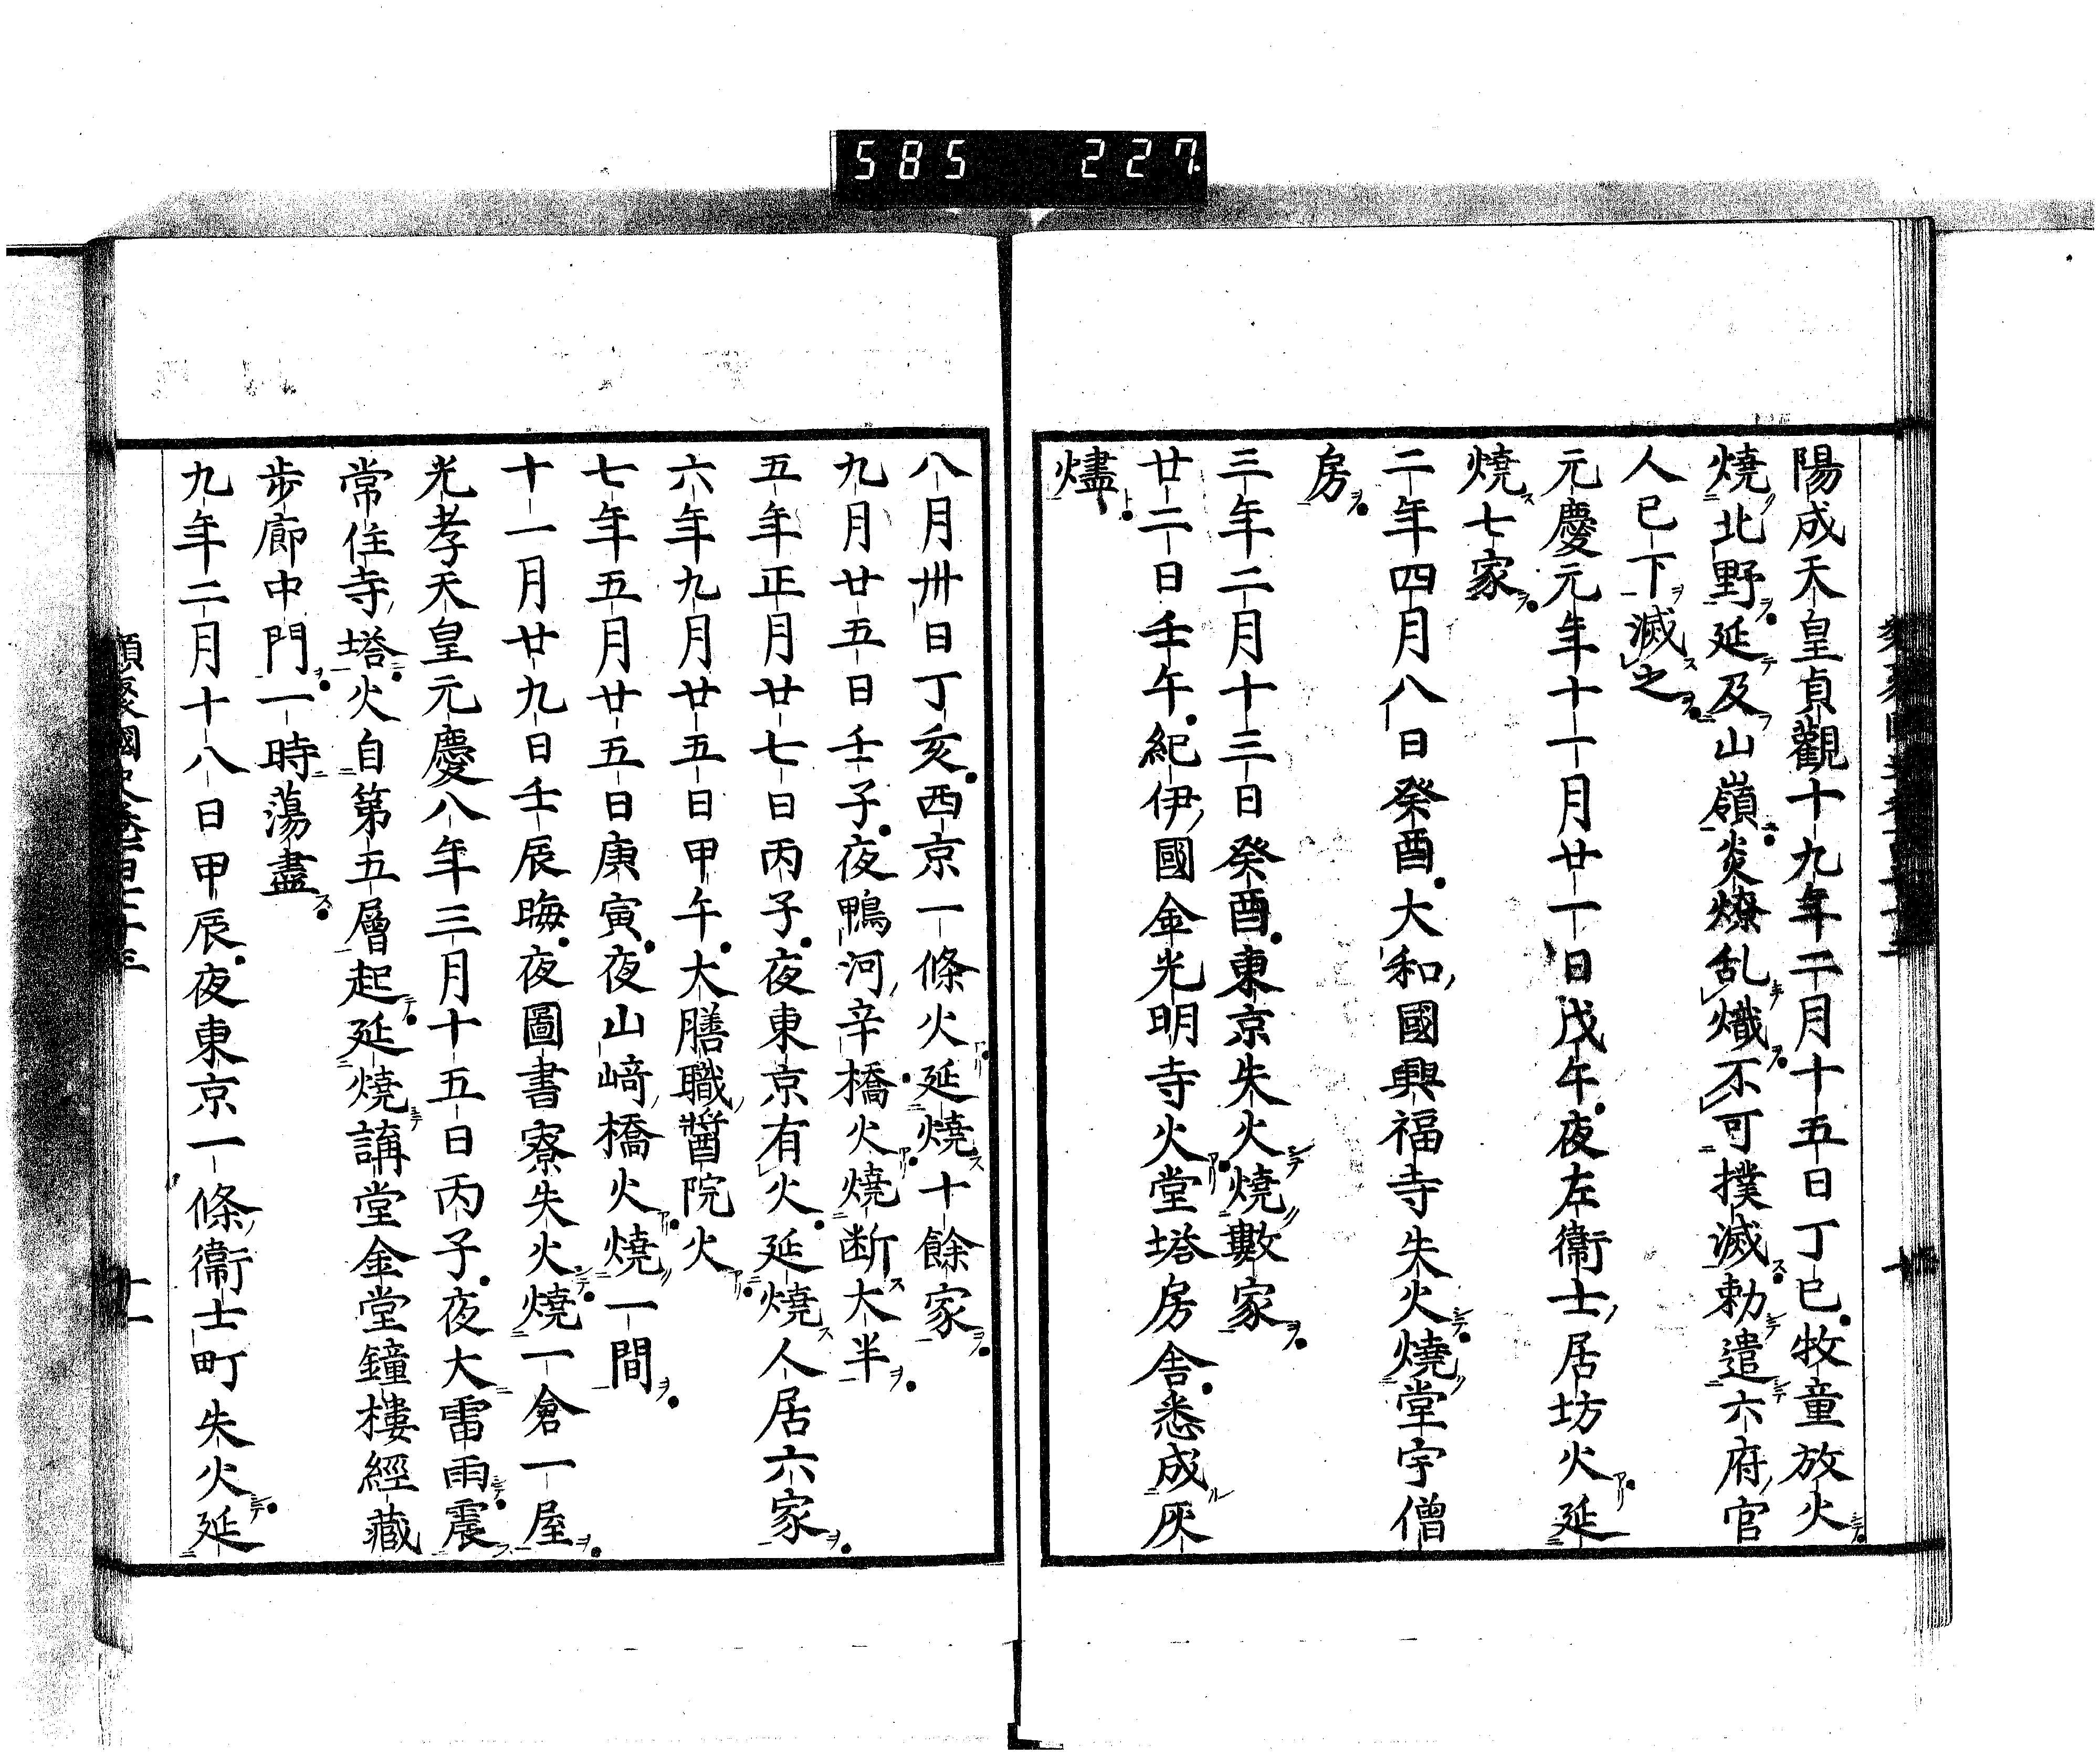 585 227
陽成天皇貞觀十九年二月十五日丁巳牧童放火
燒北野延及山嶺炎燎乱熾不可撲滅勅遣六府官
人已下滅之
元慶元年十一月廿一日戊午夜左衞士居坊火延
燒七家
二年四月八日癸酉大和國興福寺失火燒堂宇僧
房
三年二月十三日癸酉東京失火燒數家
廿二日壬午紀伊國金光明寺火堂塔房舎悉成灰
燼
八月卅日丁亥西京一條火延燒十餘家
九月廿五日壬子夜鴨河辛橋火燒断大半
五年正月廿七日丙子夜東京有火延燒人居六家
六年九月廿五日甲午大膳職醤院火
七年五月廿五日庚寅夜山﨑橋火燒一間
十一月廿九日壬辰晦夜圖書寮失火燒一倉一屋
光孝天皇元慶八年三月十五日丙子夜大雷雨震
常住寺塔火自第五層起延燒講堂金堂鐘樓經藏
步廊中門一時蕩盡
九年二月十八日甲辰夜東京一條衞士町失火延